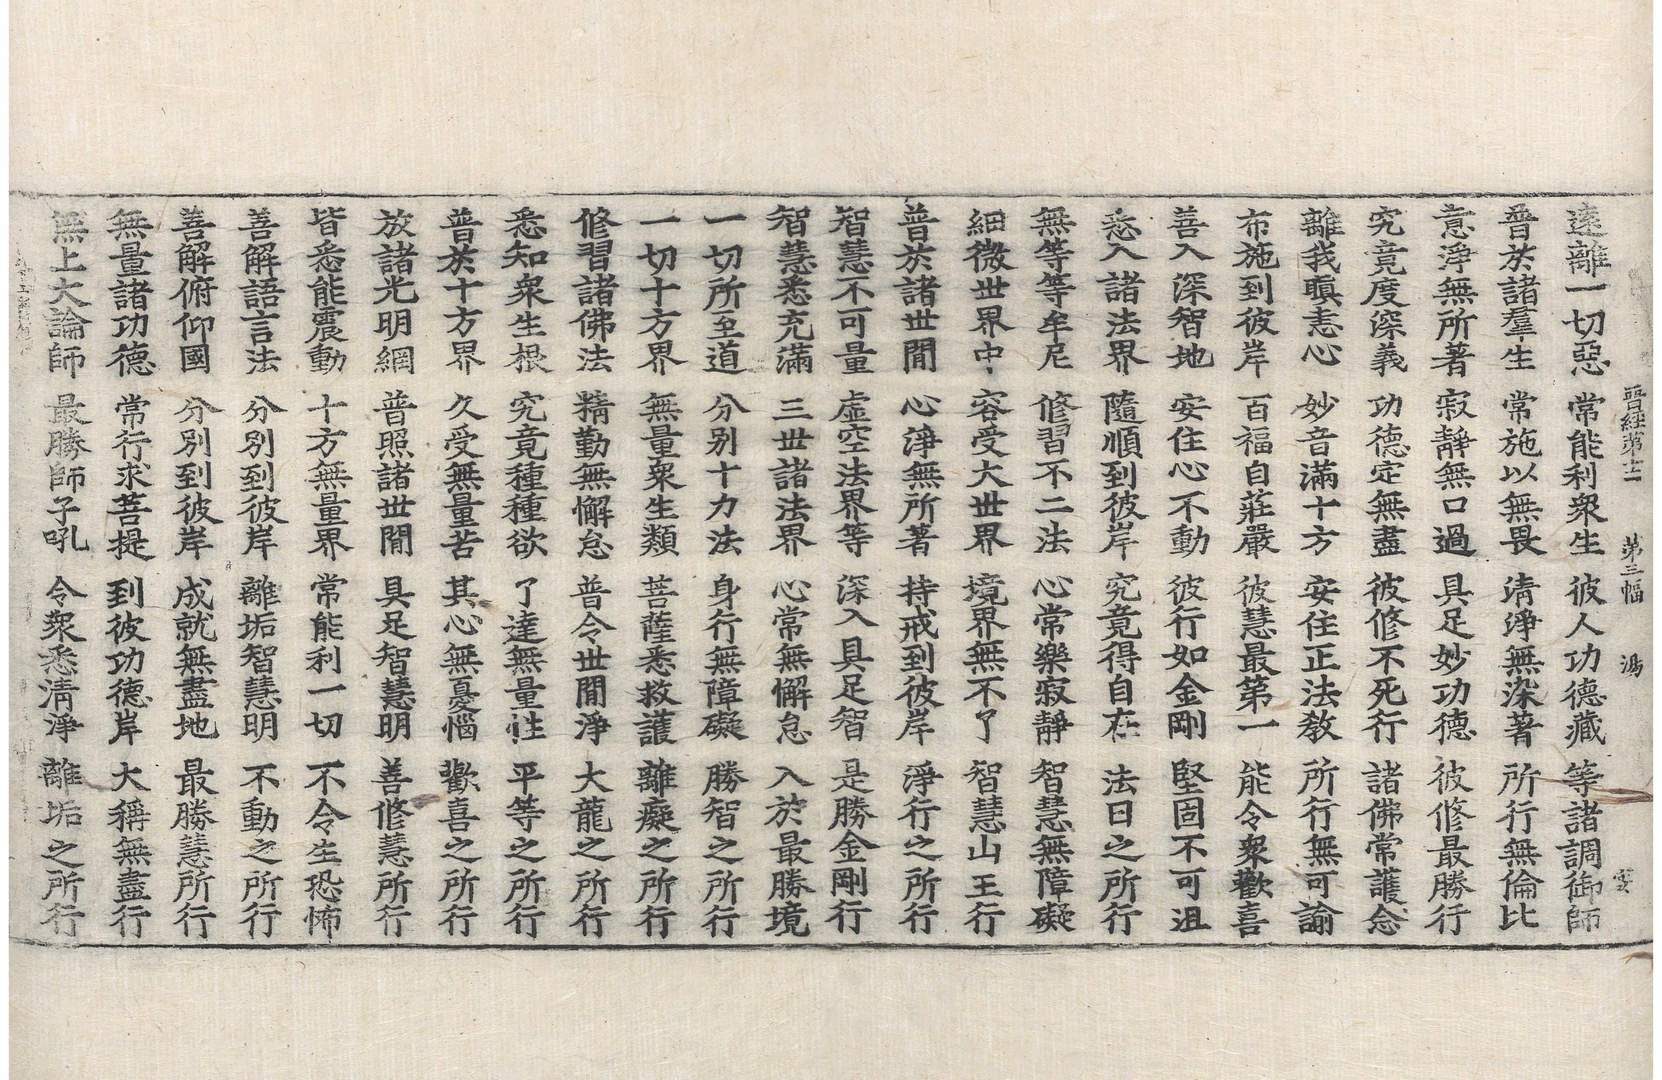 晉經第十二 第三幅 鴻
遠離一切惡 常能利衆生 彼人功德藏 等諸調御師
普於諸羣生 常施以無畏 清淨無染著 所行無倫比
意淨無所著 寂靜無口過 具足妙功德 彼修最勝行
究竟度深義 功德定無盡 彼修不死行 諸佛常護念
離我瞋恚心 妙音滿十方 安住正法敎 所行無可諭
布施到彼岸 百福自莊嚴 彼慧最第一 能令衆歡喜
善入深智地 安住心不動 彼行如金剛 堅固不可沮
悉入諸法界 隨順到彼岸 究竟得自在 法日之所行
無等等牟尼 修習不二法 心常樂寂靜 智慧無障礙
細微世界中 容受大世界 境界無不了 智慧山王行
普於諸世間 心淨無所著 持戒到彼岸 淨行之所行
智慧不可量 虛空法界等 深入具足智 是勝金剛行
智慧悉充滿 三世諸法界 心常無懈怠 入於最勝境
一切所至道 分別十力法 身行無障礙 勝智之所行
一切十方界 無量衆生類 菩薩悉救護 離癡之所行
修習諸佛法 精勤無懈怠 普令世間淨 大龍之所行
悉知衆生根 究竟種種欲 了達無量性 平等之所行
普於十方界 久受無量苦 其心無憂惱 歡喜之所行
放諸光明網 普照諸世間 具足智慧明 善修慧所行
皆悉能震動 十方無量界 常能利一切 不令生恐怖
善解語言法 分別到彼岸 離垢智慧明 不動之所行
善解俯仰國 分別到彼岸 成就無盡地 最勝慧所行
無量諸功德 常行求菩提 到彼功德岸 大稱無盡行
無上大論師 最勝師子吼 令衆悉淸淨 離垢之所行